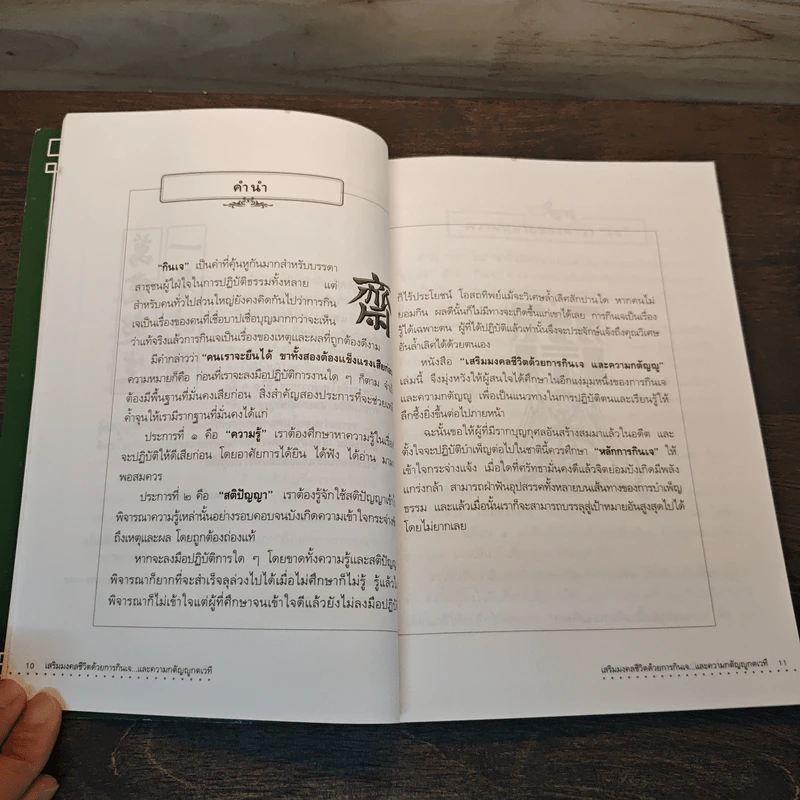 คำนำ
"กินเจ" เป็นคำที่คุ้นหูกันมากสำหรับบรรดา
สาธุชนผู้ใฝ่ใจในการปฏิบัติธรรมทั้งหลาย แต่
สำหรับคนทั่วไปส่วนใหญ่ยังคงคิดกันไปว่าการกิน
เจเป็นเรื่องของคนที่เชื่อบาปเชื่อบุญมากกว่าจะเห็น
ว่าแท้จริงแล้วการกินเจเป็นเรื่องของเหตุและผลที่ถูกต้องดีงาม
齋
มีคำกล่าวว่า "คนเราจะยืนได้ ขาทั้งสองต้องแข็งแรงเสียก่อน
ความหมายก็คือ ก่อนที่เราจะลงมือปฏิบัติการงานใด ๆ ก็ตาม
ต้องมีพื้นฐานที่มั่นคงเสียก่อน สิ่งสำคัญสองประการที่จะช่วย
ค้ำจุนให้เรามีรากฐานที่มั่นคงได้แก่
ประการที่ ๑ คือ "ความรู้" เราต้องศึกษาหาความรู้ในเรื่อง
จะปฏิบัติให้ดีเสียก่อน โดยอาศัยการได้ยิน ได้ฟัง ได้อ่าน มา
พอสมควร
ประการที่ ๒ คือ "สติปัญญา" เราต้องรู้จักใช้สติปัญญา
พิจารณาความรู้เหล่านั้นอย่างรอบคอบจนบังเกิดความเข้าใจกระจ่าง
ถึงเหตุและผล โดยถูกต้องถ่องแท้
หากจะลงมือปฏิบัติการใด ๆ โดยขาดทั้งความรู้และสติปัญญา
พิจารณาก็ยากที่จะสำเร็จลุล่วงไปได้เมื่อไม่ศึกษาก็ไม่รู้ รู้แล้ว
พิจารณาก็ไม่เข้าใจแต่ผู้ที่ศึกษาจนเข้าใจดีแล้วยังไม่ลงมือปฏิบัติ
10 เสริมมงคลชีวิตด้วยการกินเจ...และความกตัญญูกตเวที
ก็ไร้ประโยชน์ โอสถทิพย์แม้จะวิเศษล้ำเลิศสักปานใด หากคนไม่
ยอมกิน ผลดีนั้นก็ไม่มีทางจะเกิดขึ้นแก่เขาได้เลย การกินเจเป็นเรื่อง
รู้ได้เฉพาะตน ผู้ที่ได้ปฏิบัติแล้วเท่านั้นจึงจะประจักษ์แจ้งถึงคุณวิเศษ
อันล้ำเลิศได้ด้วยตนเอง
หนังสือ "เสริมมงคลชีวิตด้วยการกินเจ และความกตัญญู"
เล่มนี้ จึงมุ่งหวังให้ผู้สนใจได้ศึกษาในอีกแง่มุมหนึ่งของการกินเจ
และความกตัญญู เพื่อเป็นแนวทางในการปฏิบัติตนและเรียนรู้ให้
ลึกซึ้งยิ่งขึ้นต่อไปภายหน้า
ฉะนั้นขอให้ผู้ที่มีรากบุญกุศลอันสร้างสมมาแล้วในอดีต และ
ตั้งใจจะปฏิบัติบำเพ็ญต่อไปในชาตินี้ควรศึกษา "หลักการกินเจ" ให้
เข้าใจกระจ่างแจ้ง เมื่อใดที่ศรัทธามั่นคงดีแล้วจิตย่อมบังเกิดมีพลัง
แกร่งกล้า สามารถฝ่าฟันอุปสรรคทั้งหลายบนเส้นทางของการบำเพ็ญ
ธรรม และแล้วเมื่อนั้นเราก็จะสามารถบรรลุสู่เป้าหมายอันสูงสุดไปได้
โดยไม่ยากเลย
เสริมมงคลชีวิตด้วยการกินเจ...และความกตัญญูกตเวที 11